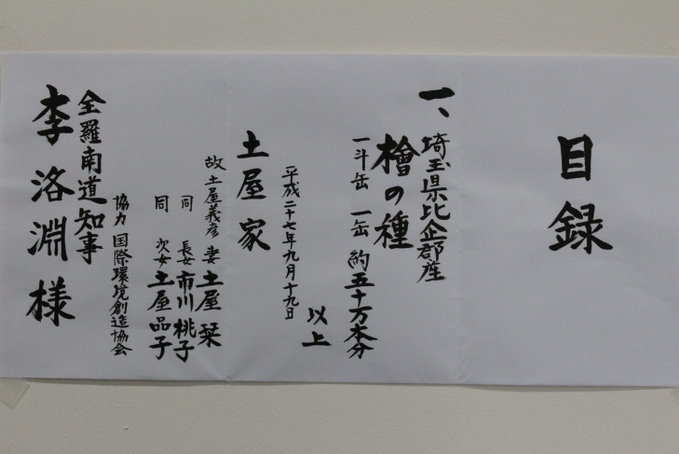 目録
一、埼玉県比企郡産
檜の種
一斗缶 一缶 約五十万本分
以上
平成二十七年九月十九日
土屋家
故土屋義彦 妻 土屋栞
同 長女 市川桃子
同 次女 土屋品子
協力 国際環境創造協会
全羅南道知事
李洛淵様